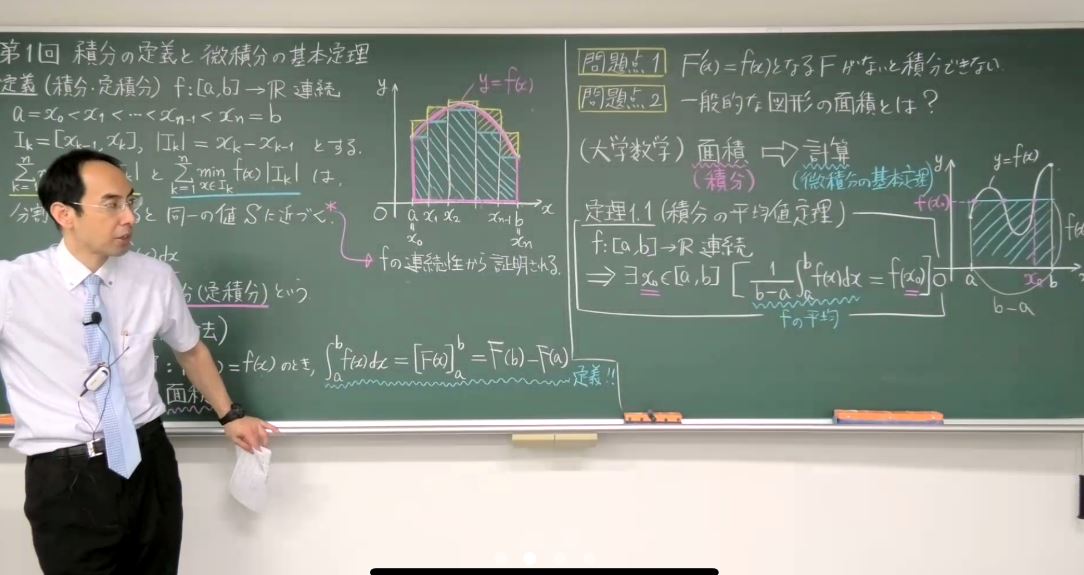 第1回 積分の定義と微積分の基本定理
定義(積分・定積分) f:[a,b]→ℝ 連続
a=x₀<x₁<…<xₙ₋₁<xₙ=b
Iₖ=[xₖ₋₁,xₖ], |Iₖ|=xₖ-xₖ₋₁ とする.
と Σₖ₌₁ⁿ min_{x∈Iₖ} f(x)|Iₖ| は,
分割 と 同一の値 S に近づく.*
dx
(定積分)という
法)
=f(x)のとき, ∫ₐᵇf(x)dx=[F(x)]ₐᵇ=F(b)-F(a)
面積
定義!!
y
y=f(x)
O a x₁ x₂ xₙ₋₁ b x
=x₀ =xₙ
fの連続性から証明される.
問題点1 F'(x)=f(x)となるFがないと積分できない.
問題点2 一般的な図形の面積とは?
(大学数学) 面積 ⇨ 計算
(積分) (微積分の基本定理)
定理1.1(積分の平均値定理)
f:[a,b]→ℝ 連続
⇒ ∃x₀∈[a,b] [1/(b-a) ∫ₐᵇf(x)dx = f(x₀)]
fの平均
y
y=f(x)
f(x₀)
O a x₀ b x
b-a